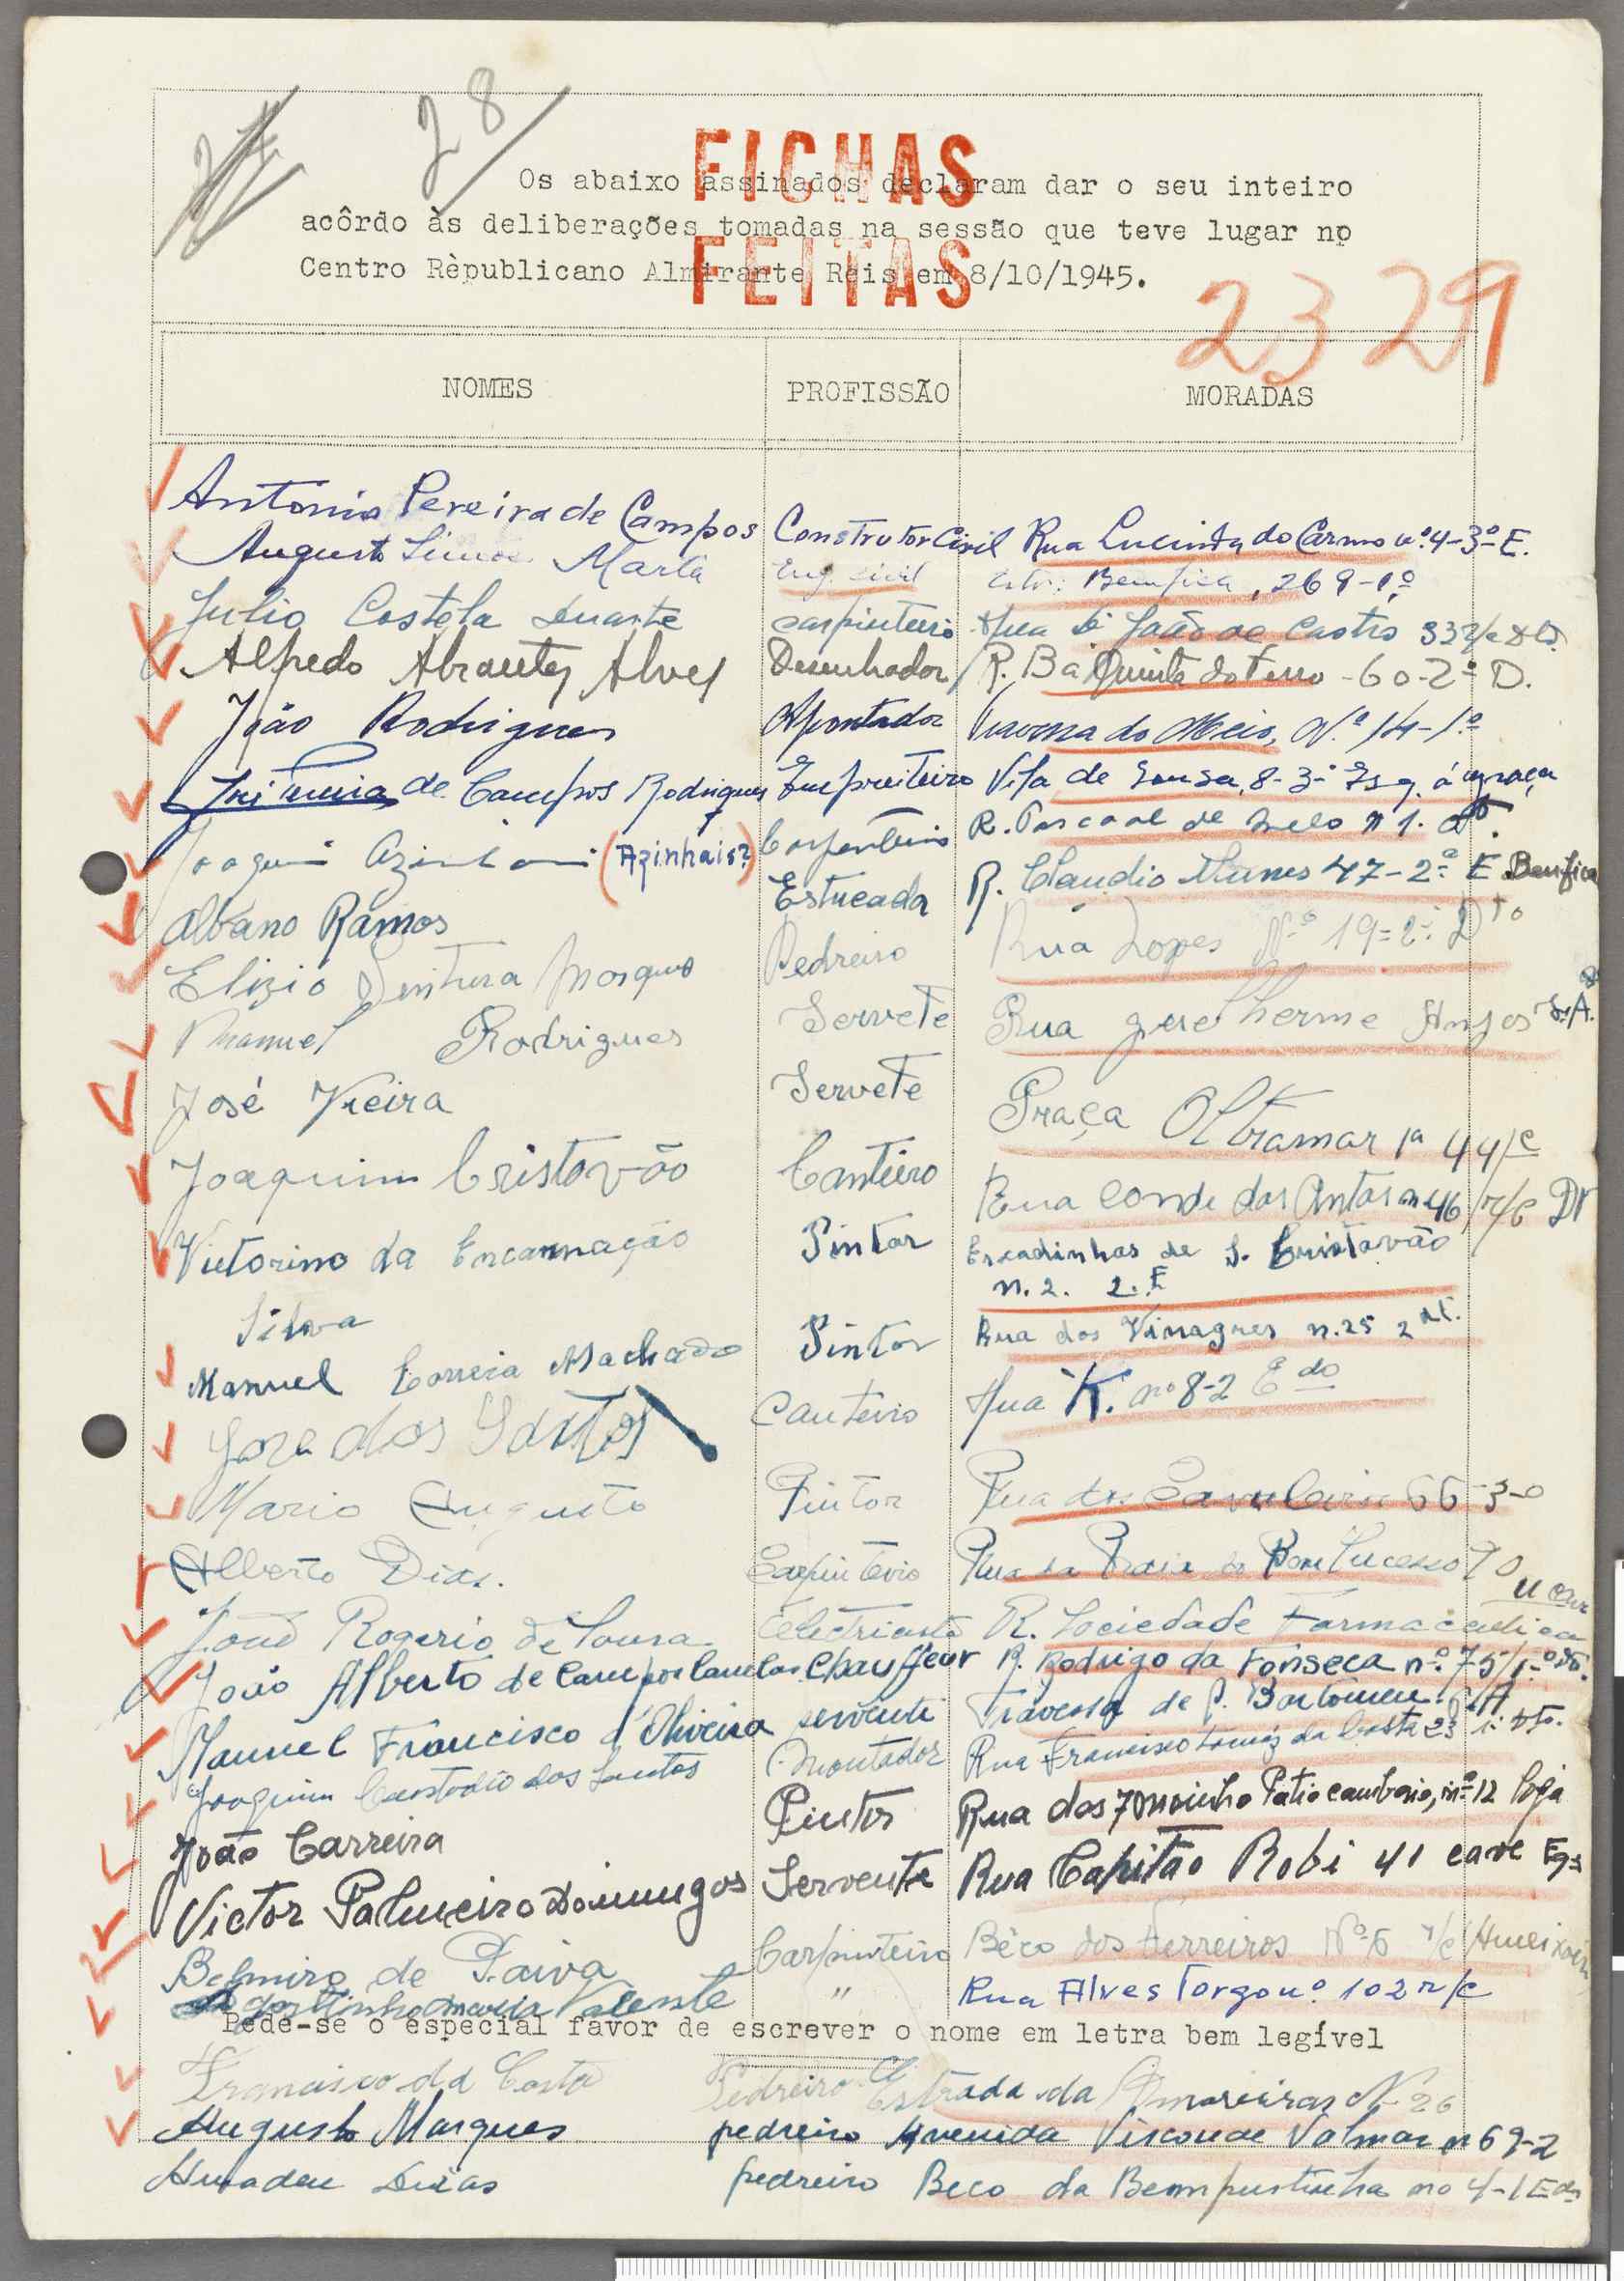 28
FICHAS
Os abaixo assinados declaram dar o seu inteiro
acôrdo às deliberações tomadas na sessão que teve lugar no
FEITAS
Centro Rèpublicano Almirante Reis em 8/10/1945.
2329
NOMES PROFISSÃO MORADAS
Antonio Pereira de Campos Construtor Civil Rua Lucinda do Carmo nº 4-3º E.
Augusto Marta Eng. civil Estr. Benfica, 269-1º
Julio Costela Duarte carpinteiro Rua D. João de Castro 33 r/c Dto
Alfredo Abrantes Alves Desenhador R. Quinta do Ferro-60-2º D.
João Rodrigues Apontador Travessa do Meio, Nº 14-1º
de Campos Rodrigues Empreiteiro Vila de Sousa, 8-3º Esq. á graça
Joaquim (Azinhais?) Carpenteiro R. Pascoal de Melo n 1.
Albano Ramos Estucador R. Claudio Nunes 47-2º E. Benfica
Elizio Ventura Pedreiro Rua Lopes Nº 19=2º Dto
Manuel Rodrigues Servete Rua guelherme Anjos
José Vieira Servete Praça Oltramar 1ª 44
Joaquim Cristovão Canteiro Rua Conde das Antas n 46 r/c Dt
Victorino da Encarnação Pintor Escadinhas de S. Cristovão
n. 2. 2. E
Silva
Manuel Correia Machado Pintor Rua dos Vinagres n. 25 2 dt.
Jose dos Santos Canteiro Rua K. nº 8-2 Edo
Mario Augusto Pintor Rua dos 66-3-o
Alberto Dias. Carpinteiro Rua da Praia do Bom Sucesso 70
João Rogerio de Sousa Eletricista R. Sociedade Farmaceutica
João Alberto de Campos Canelas Chauffeur R. Rodrigo da Fonseca nº 75/1º
Manuel Francisco d'Oliveira servente Travessa de S. Bartomeu
Joaquim Custodio dos Santos Montador Rua Francisco Tomás da Costa 23 1º Dto.
João Carreira Pintor Rua dos 7 moinho Patio nº 12 loja
Victor Palmeiro Domingos Servente Rua Capitão Robi 41 cave Eqs
Belmiro de Paiva Carpinteiro Bêco dos Ferreiros Nº 6 r/c
Agosttinho Maria Valente " Rua Alves Torgo nº 102 r/c
Pede-se o especial favor de escrever o nome em letra bem legível
Francisco da Costa Pedreiro Estrada da Amoreiras N 26
Augusto Marques pedreiro Avenida Visconde Valmor n 69-2
Amadeu Dias pedreiro Beco da Bempustinha no 4-1 Edo